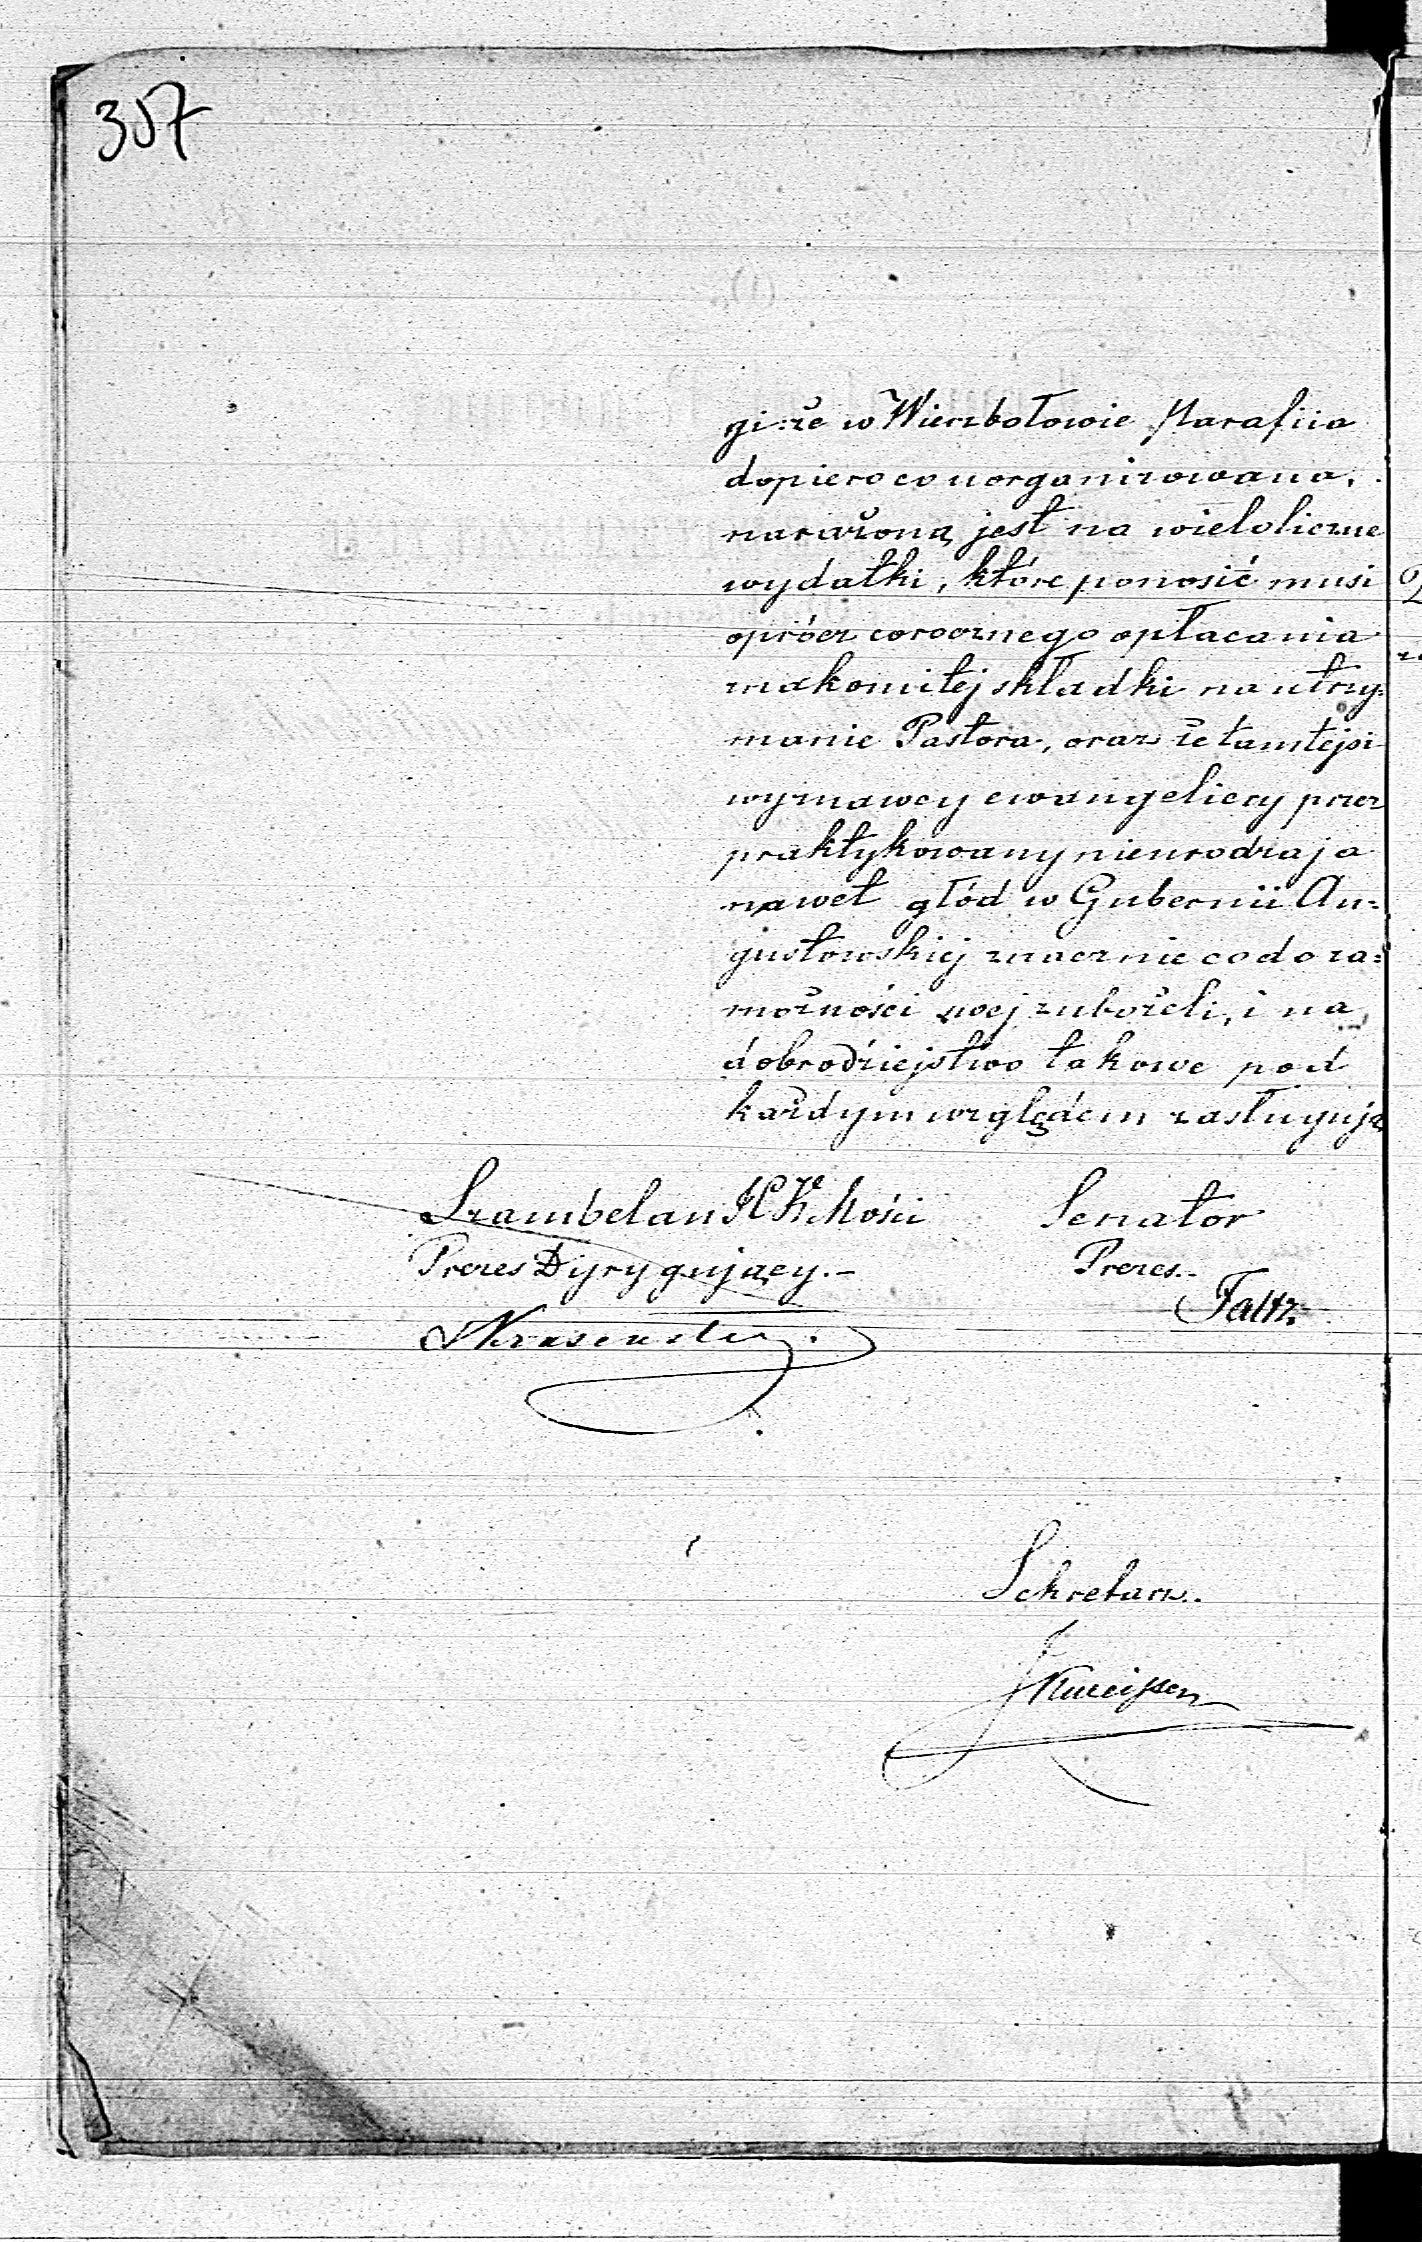 357
gi: że w Wierzbołowie Parafiia
dopiero co uorganizowana,
narażoną jest na wieloliczne
wydatki, które ponosić musi
oprócz corocznego opłacania
znakomitej składki na utrzy=
manie Pastora, oraz że tamtejsi
wyznawcy ewangeliccy przez
praktykowany nieurodzaj a
nawet głód w Gubernii Au=
gustowskiej znacznie co do za=
możności swej zubożeli, i na
dobrodziejstwo takowe pod
każdym względem zasługują
Szambelan J K K Mości Senator
Prezes Dyrygujący.— Prezes.—
Faltz.
Sekretarz.